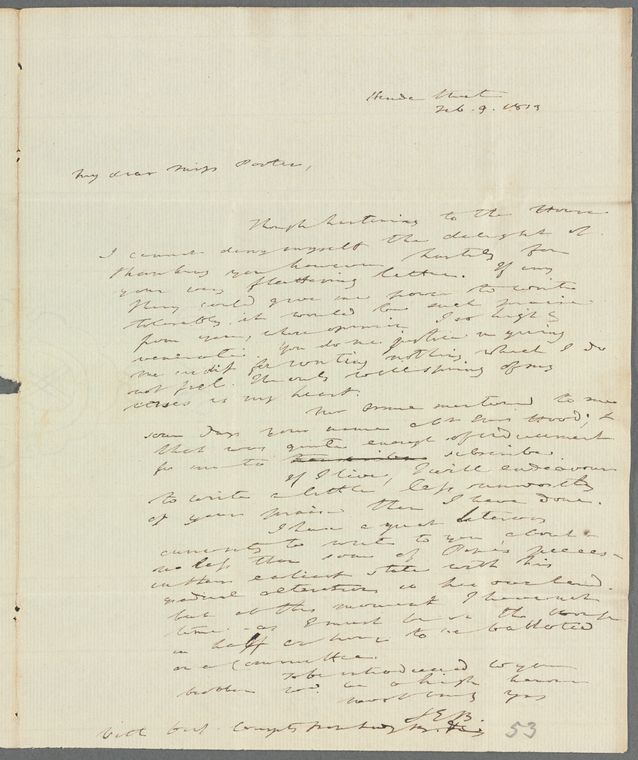 Feb. 9. 1813
My dear Miss Porter,
Though hastening to the House
I cannot deny myself the delight of
thanking you however hastily for
your very flattering letter. If any
thing could give me power to write
tolerably it would be such praise
from you, whose opinion I so highly
venerate. You do me justice in giving
me credit for writing nothing which I do
not feel. The only wellspring of my
verses is my heart.
mentioned to me
some days your name
that was quite enough of inducement
for me to subscribe.
If I live, I will endeavour
to write a little less unworthy
of your praise than I have done.
I have a great literary
curiosity to write to you about
no less than some of Pope's pieces
in their earliest state with his
gradual alterations in his own hand.
but at this moment I have not
time as I must be in the House
in half an hour to be balloted
on a Committee.
To be introduced to your
brother will be a high honour
yrs
S.E.B.
with best
53